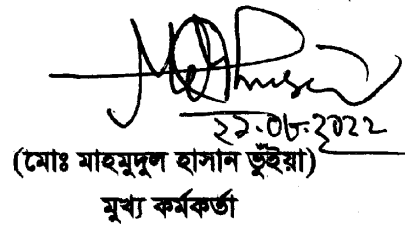 ২১.০৮.২০২২
(মোঃ মাহমুদুল হাসান ভূঁইয়া)
মুখ্য কর্মকর্তা